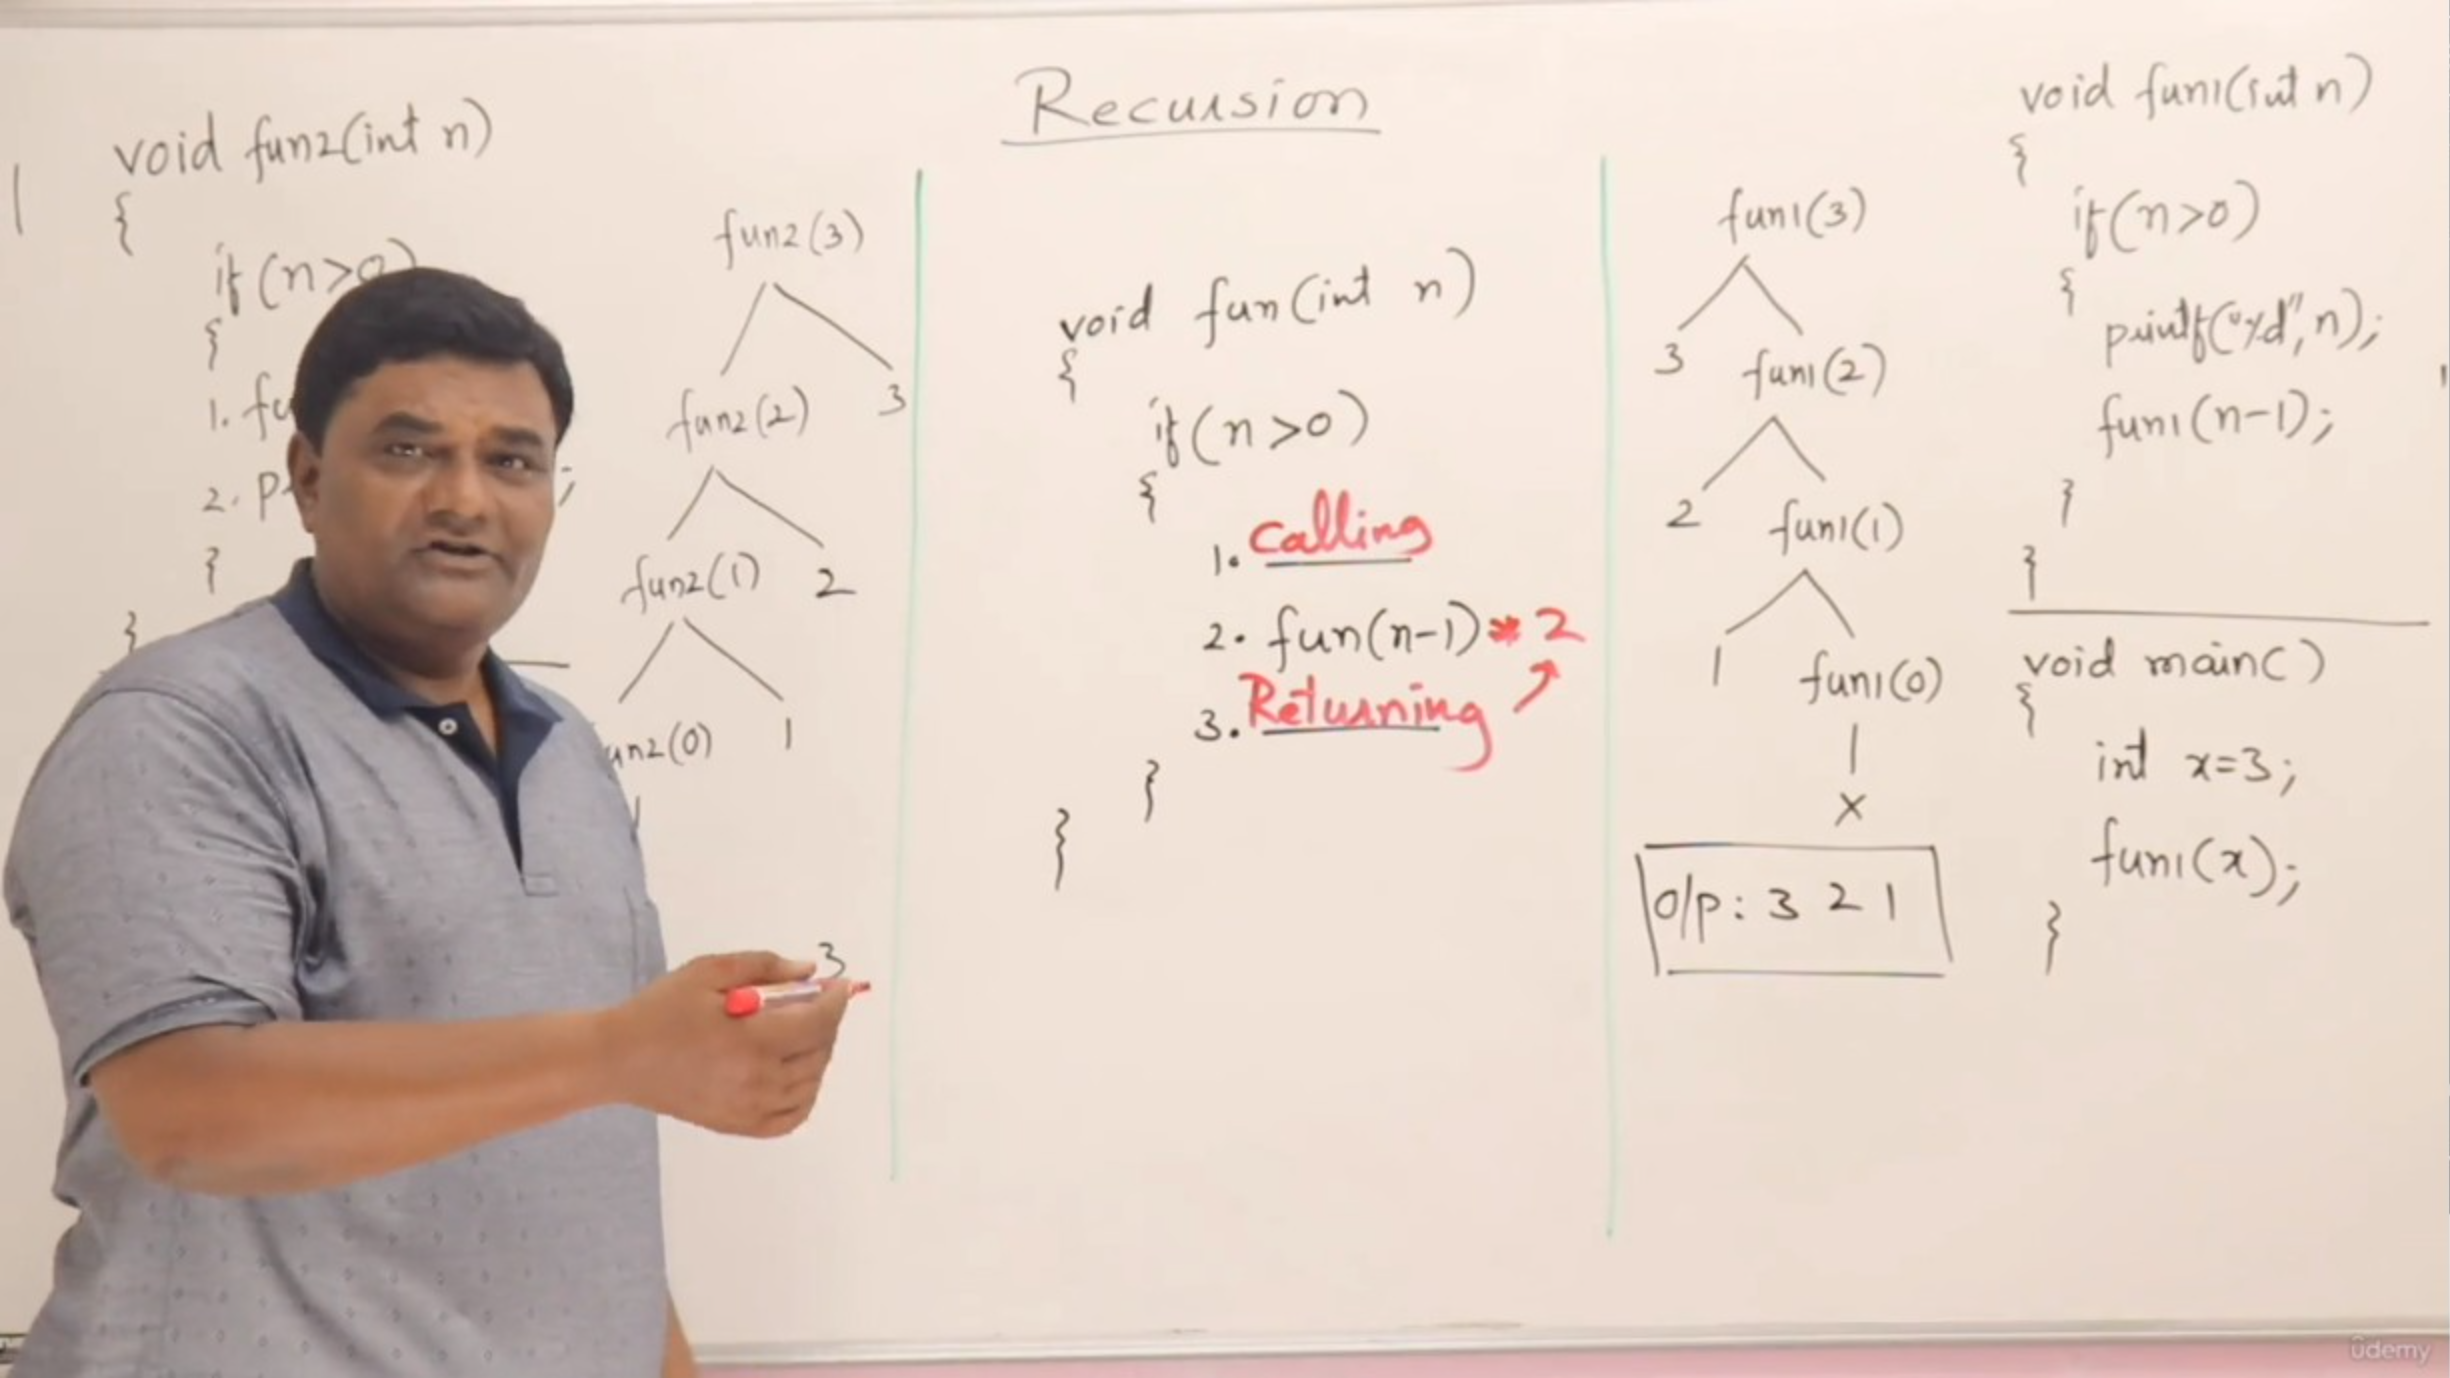 Recursion
void fun2(int n)
{
if(n>0)
{
1. fu
2. p ;
}
}
fun2(3)
fun2(2) 3
fun2(1) 2
un2(0) 1
3
void fun(int n)
{
if(n>0)
{
1. Calling
2. fun(n-1)*2
3. Returning
}
}
fun1(3)
3 fun1(2)
2 fun1(1)
1 fun1(0)
X
o/p: 3 2 1
void fun1(int n)
{
if(n>0)
{
printf("%d", n);
fun1(n-1);
}
}
void main()
{
int x=3;
fun1(x);
}
udemy